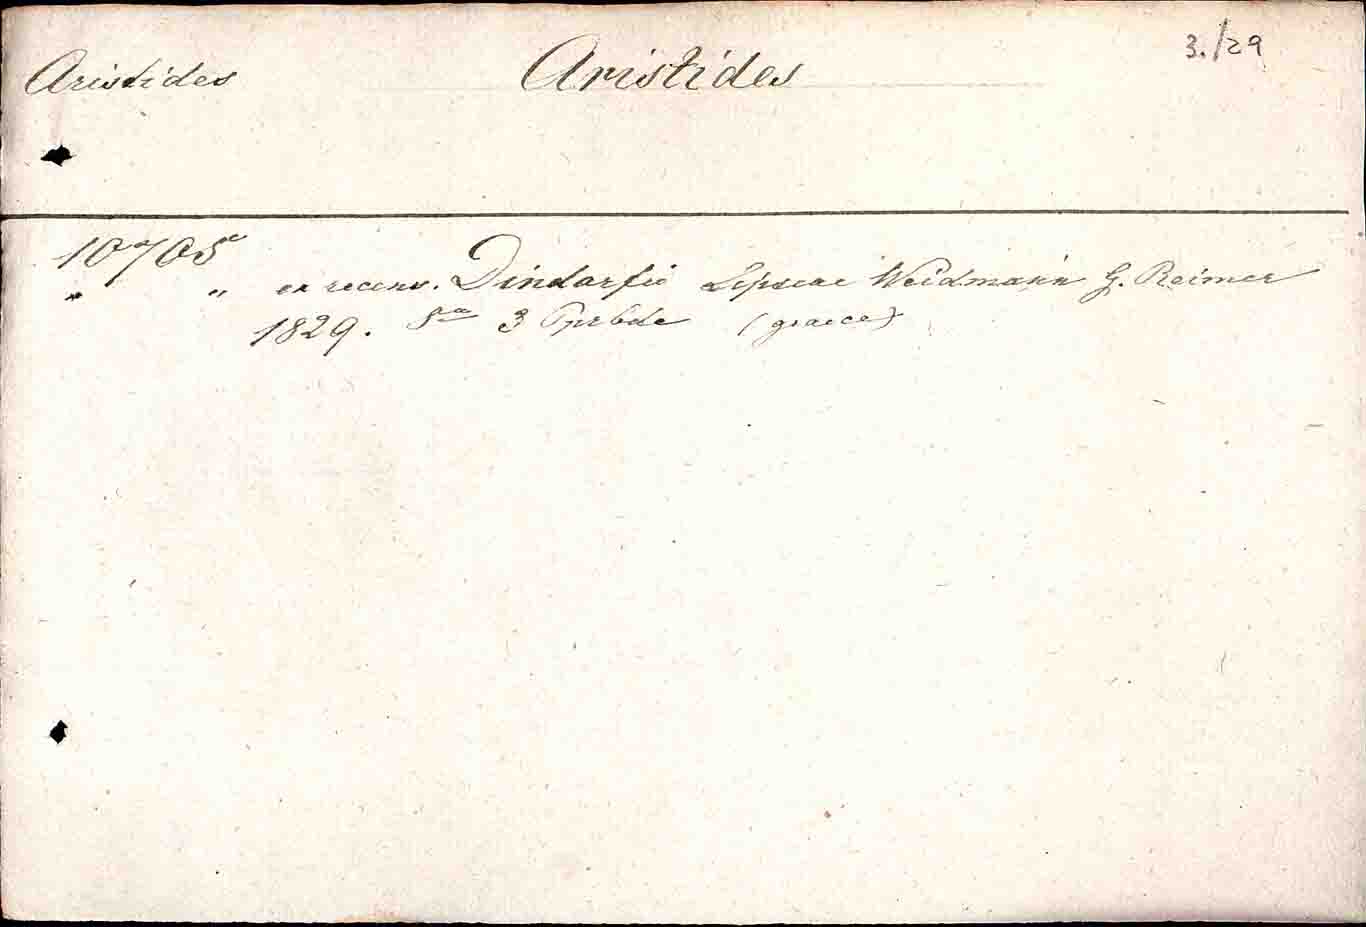 3./29
Aristides Aristides
10705
" " ex recens. Dindorfii Lipsiae Weidmann G. Reimer
1829. 8° 3 Pprbde (graece)